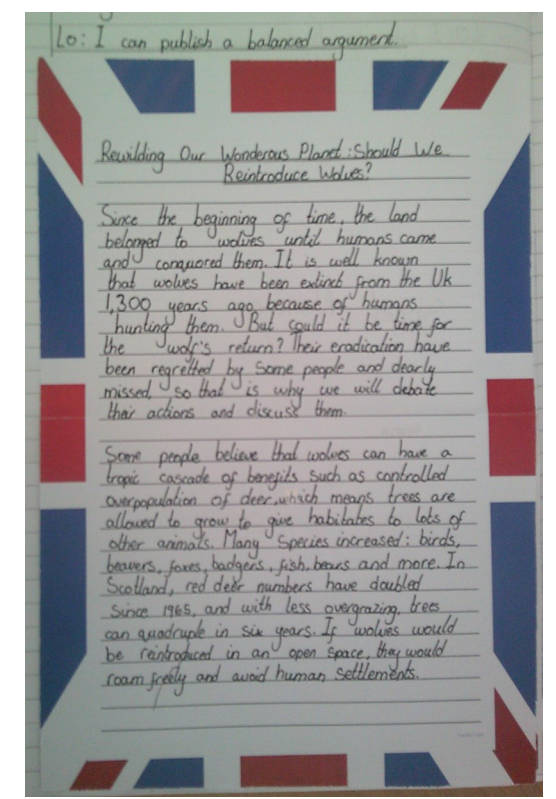 Lo: I can publish a balanced argument.
Rewilding Our Wonderous Planet: Should We
Reintroduce Wolves?
Since the beginning of time, the land
belonged to wolves until humans came
and conquored them. It is well known
that wolves have been extinct from the Uk
1,300 years ago because of humans
hunting them. But could it be time for
the wolf's return? Their eradication have
been regretted by some people and dearly
missed, so that is why we will debate
their actions and discuss them.
Some people believe that wolves can have a
tropic cascade of benefits such as controlled
overpopulation of deer, which means trees are
allowed to grow to give habitates to lots of
other animals. Many species increased: birds,
beavers, foxes, badgers, fish, bears and more. In
Scotland, red deer numbers have doubled
since 1965, and with less overgrazing, trees
can quadruple in six years. If wolves would
be reintroduced in an open space, they would
roam freely and avoid human settlements.